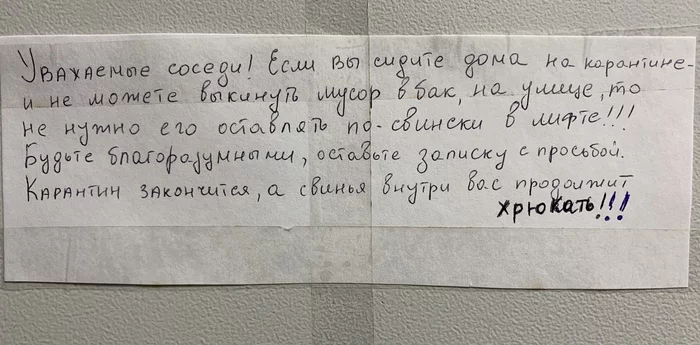 Уважаемые соседи! Если вы сидите дома на карантине-
и не можете выкинуть мусор в бак, на улице, то
не нужно его оставлять по-свински в лифте!!!
Будьте благоразумными, оставьте записку с просьбой.
Карантин закончится, а свинья внутри вас продолжит
хрюкать!!!